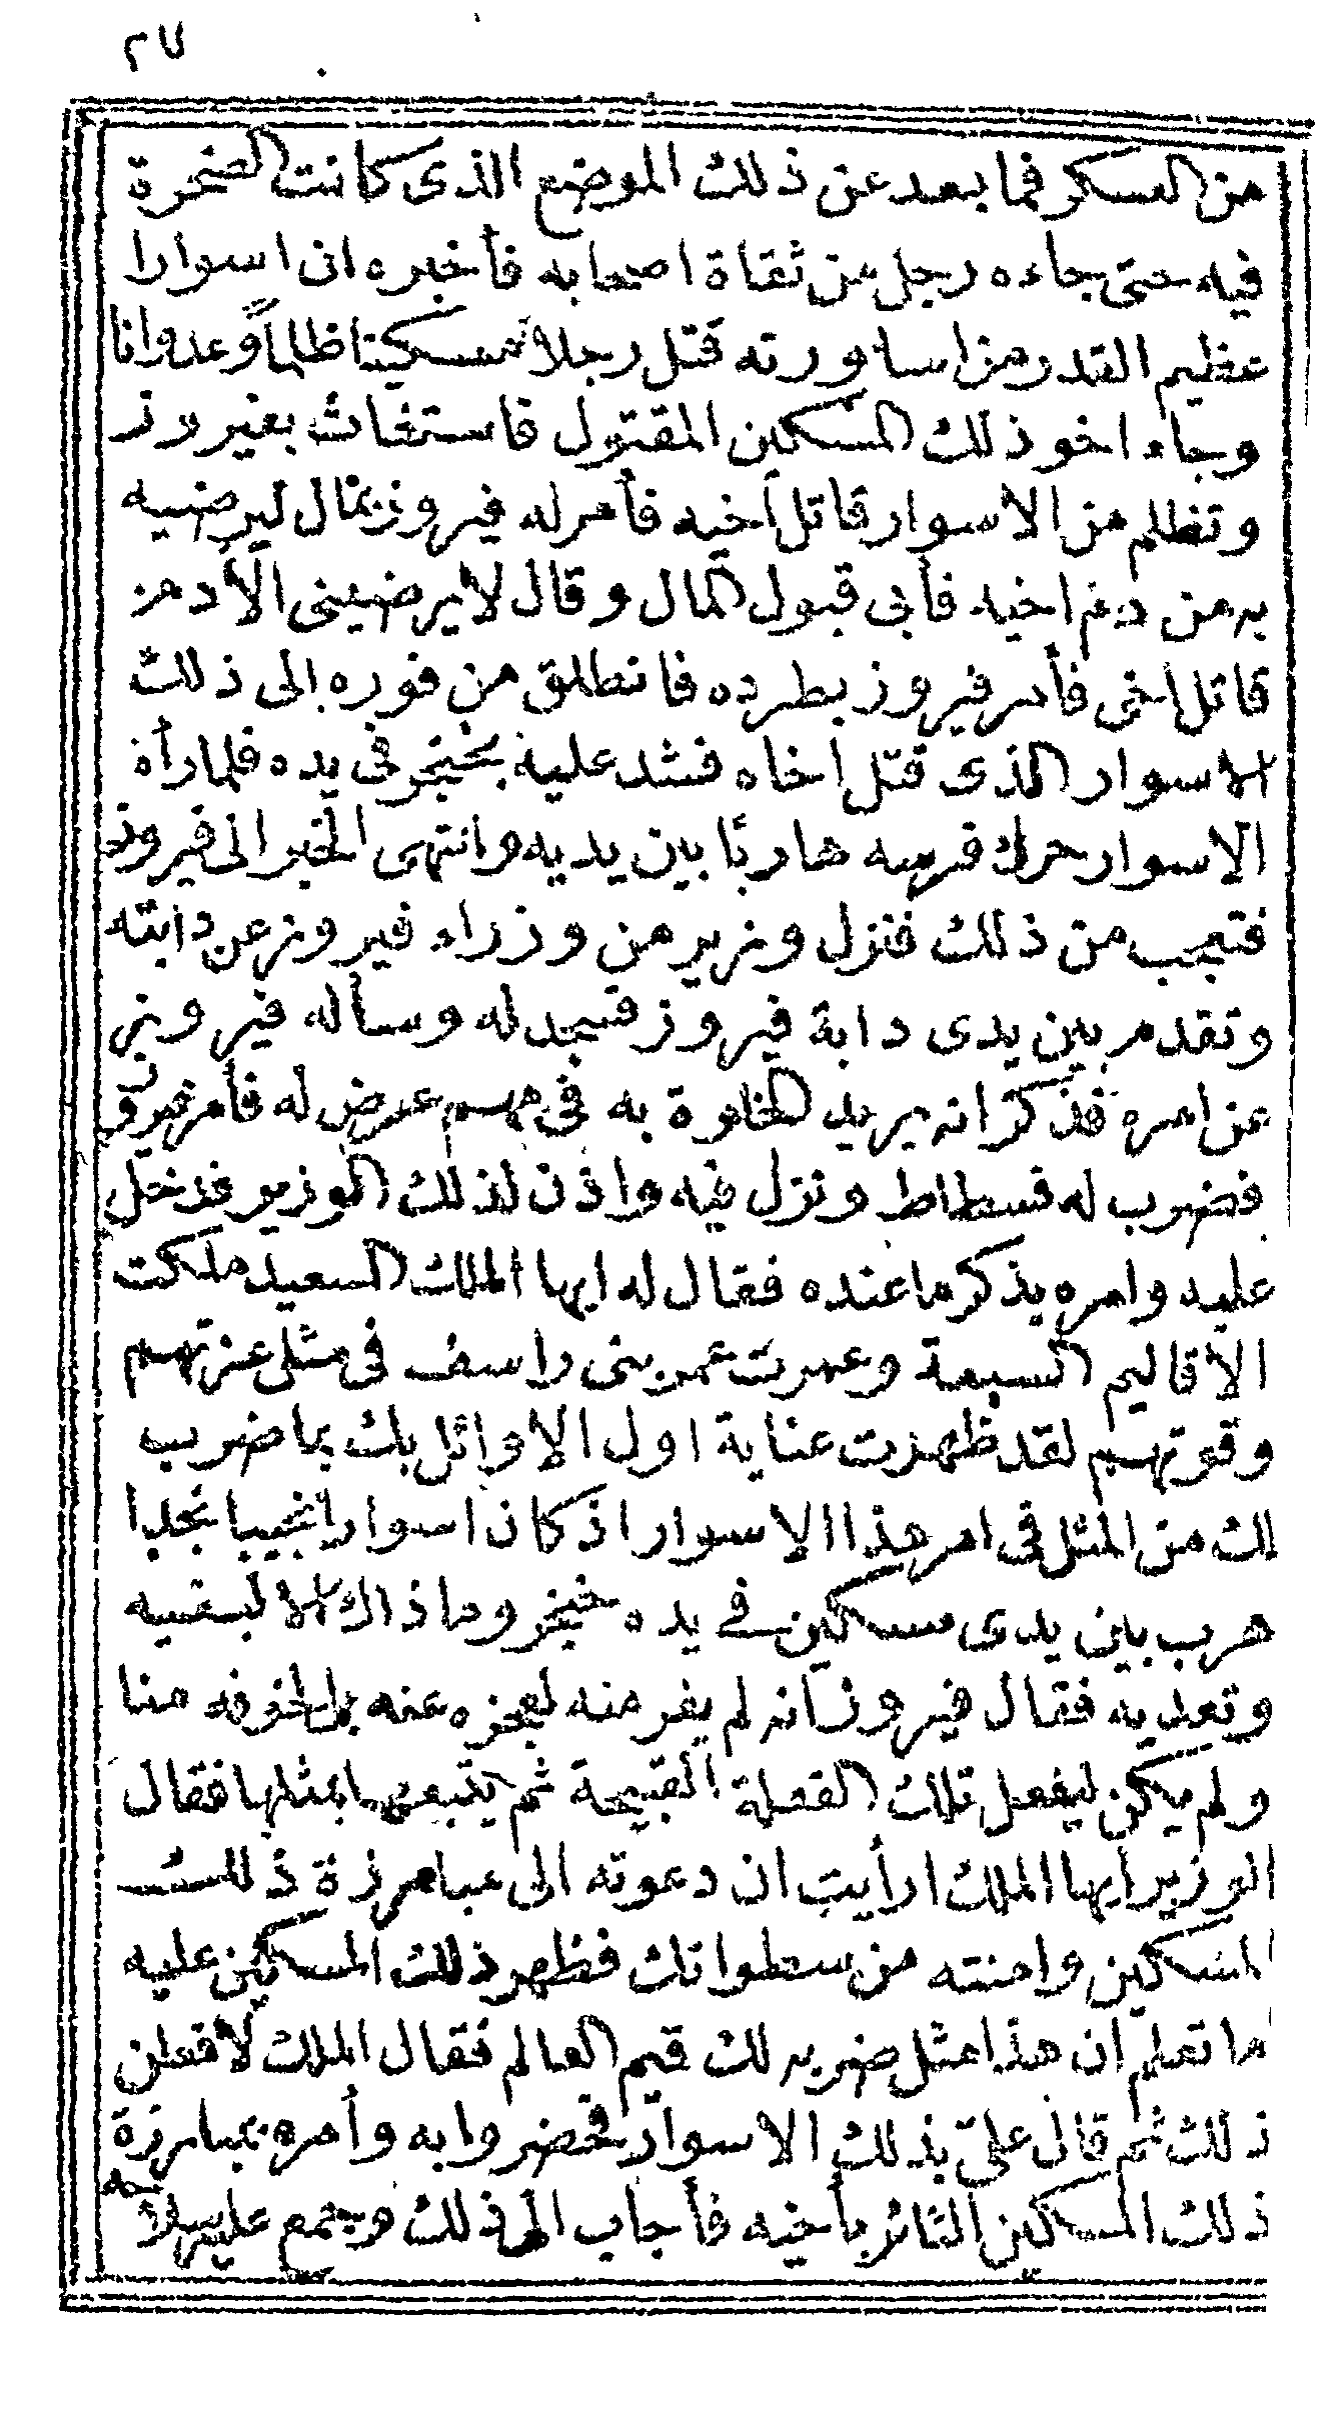 ٢٧
من العسكر فما بعد عن ذلك الموضع الذى كانت الصخرة
فيه حتى جاءه رجل من ثقاة اصحابه فأخبره ان اسوارا
عظيم القدر من اساورته قتل رجلا مسكينا ظلما وعدوانا
وجاء اخو ذلك المسكين المقتول فاستغاث بفيروز
وتظلم من الاسوار قاتل أخيه فأمر له فيروز بمال ليرضيه
به من دم اخيه فأبى قبول المال وقال لا يرضينى الا دم من
قاتل أخى فأمر فيروز بطرده فانطلق من فوره الى ذلك
الاسوار الذى قتل أخاه فشد عليه بخنجر فى يده فلما رأه
الاسوار حرك فرسه هاربا بين يديه وانتهى الخبر الى فيروز
فتعجب من ذلك فنزل وزير من وزراء فيروز عن دابته
وتقدم بين يدى دابة فيروز فسجد له وسأله فيروز
عن امره فذكر انه يريد الخلوة به فى مهم عرض له فأمر فيروز
فضرب له فسطاط ونزل فيه واذن لذلك الوزير فدخل
عليه وامره بذكر ما عنده فقال له ايها الملك السعيد ملكت
الأقاليم السبعة وعمرت عمر بنى راسف فى مثل عزتهم
وقوتهم لقد ظهرت عناية اول الاوائل بك بما ضرب
لك من المثل فى امر هذا الاسوار اذ كان اسوارا نجيبا نجدا
هرب بين يدى مسكين فى يده خنجر وما ذاك الا لبغيه
وتعديه فقال فيروز انه لم يفر منه لعجزه عنه بل لخوفه منا
ولم يكن ليفعل تلك الفعلة القبيحة ثم يتبعها بمثلها فقال
الوزير ايها الملك ارأيت ان دعوته الى مبارزة ذلك
المسكين وامنته من سطواتك فظهر ذلك المسكين عليه
اما تعلم ان هذا مثل ضربه لك قيم العالم فقال الملك لأفعلن
ذلك ثم قال علىّ بذلك الاسوار فحضروا به وأمره بمبارزة
ذلك المسكين الثائر بأخيه فأجاب الى ذلك وجمع عليه سلاحه